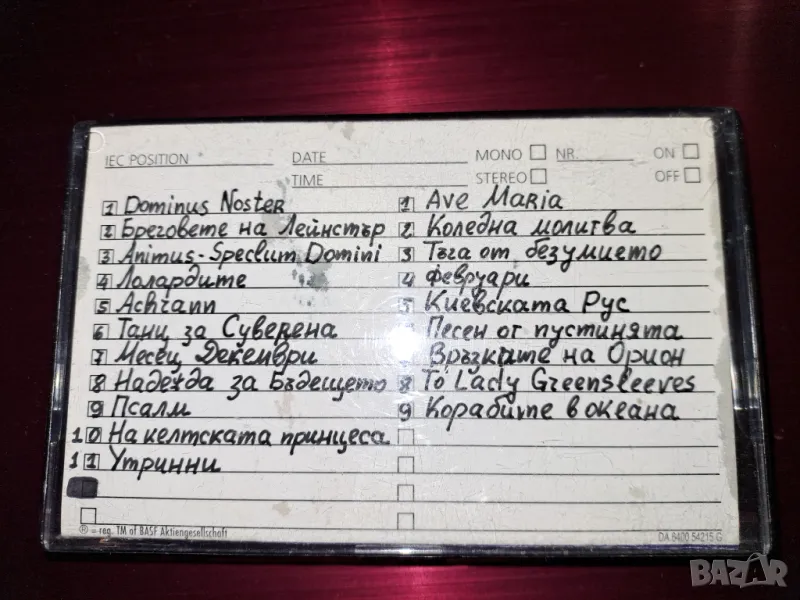 IEC POSITION DATE MONO NR. ON
TIME STEREO OFF
1 Dominus Noster
2 Бреговете на Лейнстър
3 Animus-Speclum Domini
4 Лолардите
5 Achrann
6 Танц за Суверена
7 Месец Декември
8 Надежда за Бъдещето
9 Псалм
10 На келтската принцеса
11 Утринни
1 Ave Maria
2 Коледна молитва
3 Тъга от безумието
4 Февруари
5 Киевската Рус
Песен от пустинята
Връзките на Орион
8 To Lady Greensleeves
9 Корабите в океана
® = reg. TM of BASF Aktiengesellschaft
DA 8400 54215 G
BAZAR